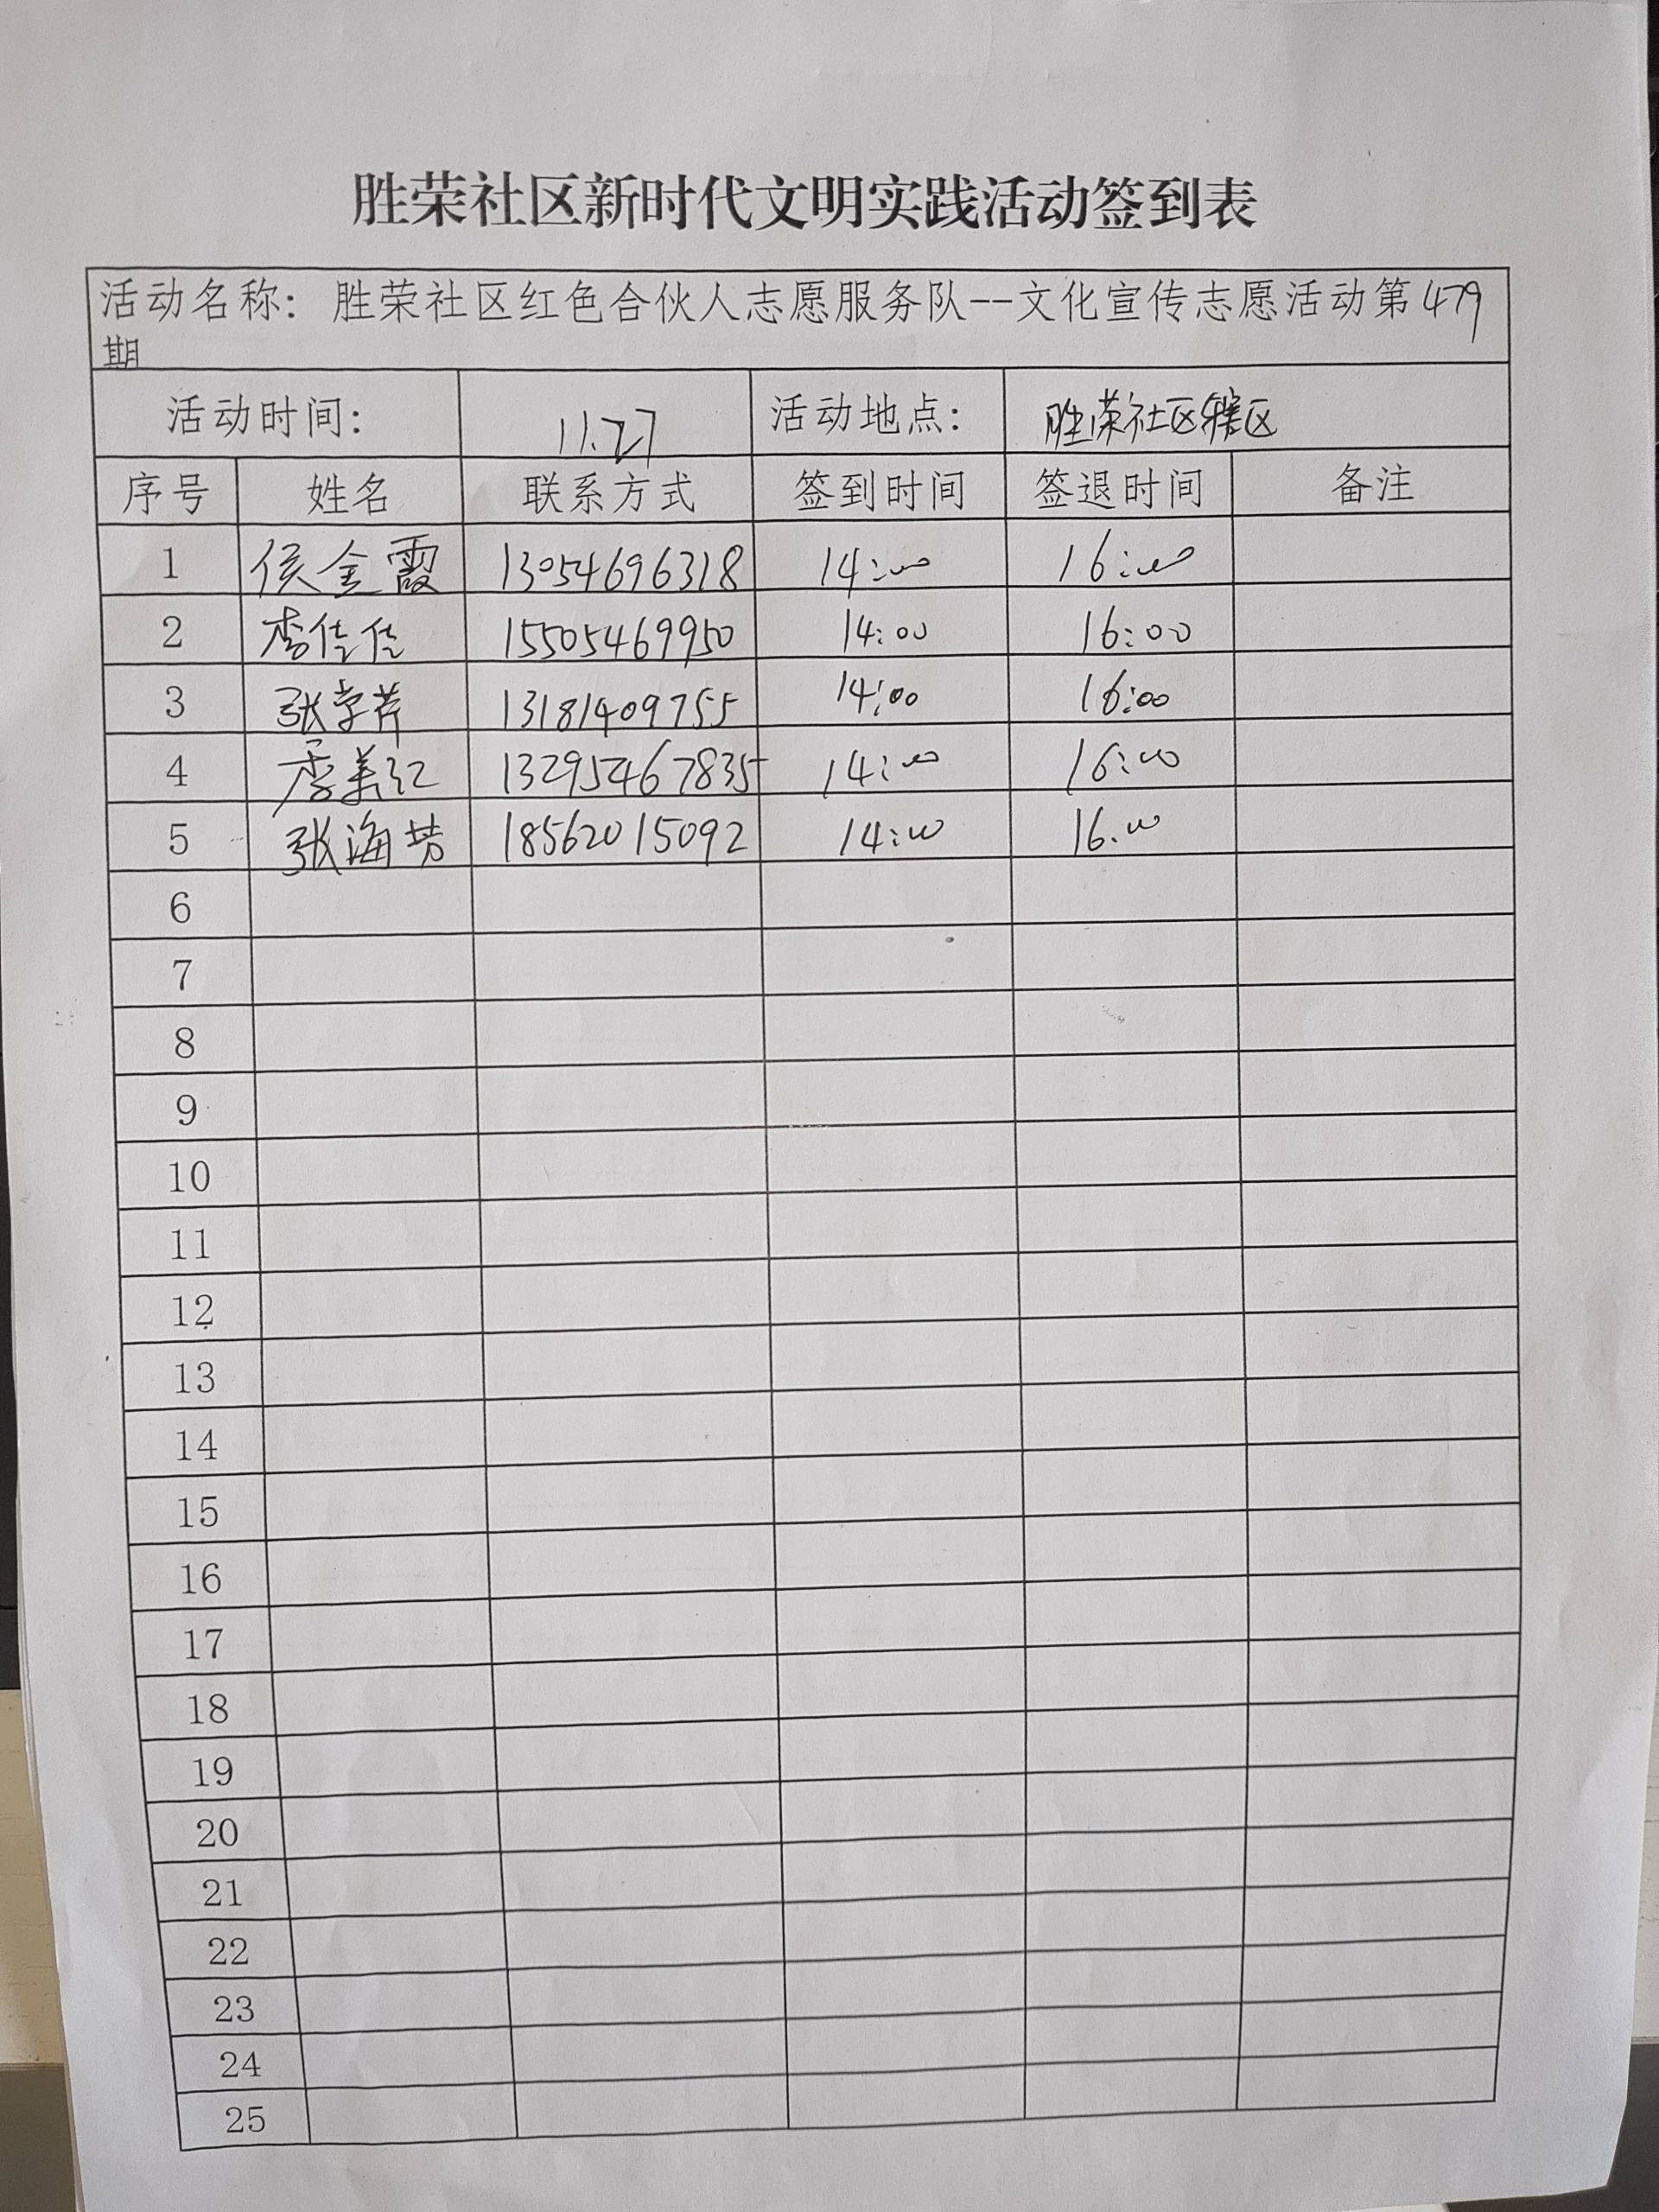 胜荣社区新时代文明实践活动签到表
活动名称：胜荣社区红色合伙人志愿服务队--文化宣传志愿活动第479
期
活动时间： 11.27 活动地点： 胜荣社区辖区
序号 姓名 联系方式 签到时间 签退时间 备注
1 侯金霞 13054696318 14:00 16:00
2 李佳佳 15505469950 14:00 16:00
3 张学芹 13181409755 14:00 16:00
4 季美红 13295467835 14:00 16:00
5 张海芳 18562015092 14:00 16.00
6
7
8
9
10
11
12
13
14
15
16
17
18
19
20
21
22
23
24
25